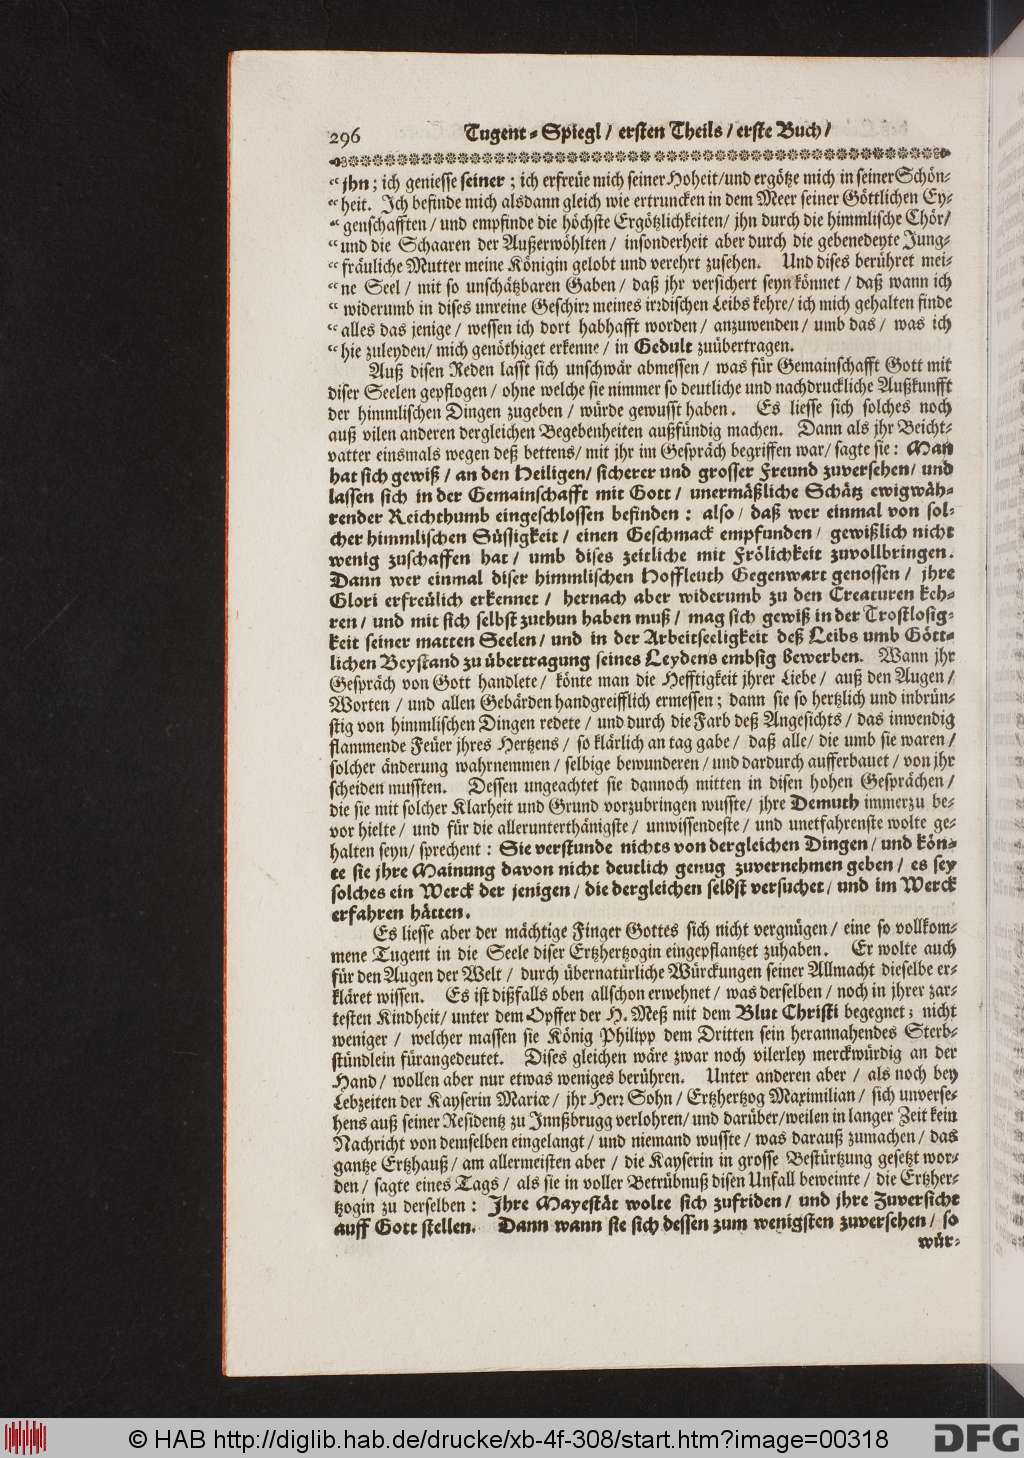 296 Tugent-Spiegl/ ersten Theils/ erste Buch/
“ jhn; ich geniesse seiner; ich erfreüe mich seiner Hoheit/und ergötze mich in seiner Schön-
“ heit. Ich befinde mich alsdann gleich wie ertruncken in dem Meer seiner Göttlichen Ey-
“ genschafften/ und empfinde die höchste Ergötzlichkeiten/ jhn durch die himmlische Chör/
“ und die Schaaren der Außerwöhlten/ insonderheit aber durch die gebenedeyte Jung-
“ fräuliche Mutter meine Königin gelobt und verehrt zusehen. Und dises berühret mei-
“ ne Seel/ mit so unschätzbaren Gaben/ daß jhr versichert seyn könnet/ daß wann ich
“ widerumb in dises unreine Geschirꝛ meines irꝛdischen Leibs kehre/ ich mich gehalten finde
“ alles das jenige/ wessen ich dort habhafft worden/ anzuwenden/ umb das/ was ich
“ hie zuleyden/ mich genöthiget erkenne/ in Gedult zuübertragen.
Auß disen Reden lasst sich unschwär abmessen/ was für Gemainschafft Gott mit
diser Seelen gepflogen/ ohne welche sie nimmer so deutliche und nachdruckliche Außkunfft
der himmlischen Dingen zugeben/ würde gewusst haben. Es liesse sich solches noch
auß vilen anderen dergleichen Begebenheiten außfündig machen. Dann als jhr Beicht-
vatter einsmals wegen deß bettens/ mit jhr im Gespräch begriffen war/ sagte sie: Man
hat sich gewiß/ an den Heiligen/ sicherer und grosser Freund zuversehen/ und
lassen sich in der Gemainschafft mit Gott/ unermäßliche Schätz ewigwäh-
render Reichthumb eingeschlossen befinden: also/ daß wer einmal von sol-
cher himmlischen Süssigkeit/ einen Geschmack empfunden/ gewißlich nicht
wenig zuschaffen hat/ umb dises zeitliche mit Frölichkeit zuvollbringen.
Dann wer einmal diser himmlischen Hoffleuth Gegenwart genossen/ jhre
Glori erfreülich erkennet/ hernach aber widerumb zu den Creaturen keh-
ren/ und mit sich selbst zuthun haben muß/ mag sich gewiß in der Trostlosig-
keit seiner matten Seelen/ und in der Arbeitseeligkeit deß Leibs umb Gött-
lichen Beystand zu übertragung seines Leydens embsig bewerben. Wann jhr
Gespräch von Gott handlete/ könte man die Hefftigkeit jhrer Liebe/ auß den Augen/
Worten/ und allen Gebärden handgreifflich ermessen; dann sie so hertzlich und inbrün-
stig von himmlischen Dingen redete/ und durch die Farb deß Angesichts/ das inwendig
flammende Feüer jhres Hertzens/ so klärlich an tag gabe/ daß alle/ die umb sie waren/
solcher änderung wahrnemmen/ selbige bewunderen/ und dardurch aufferbauet/ von jhr
scheiden mussten. Dessen ungeachtet sie dannoch mitten in disen hohen Gesprächen/
die sie mit solcher Klarheit und Grund vorzubringen wusste/ jhre Demuth immerzu be-
vor hielte/ und für die allerunterthänigste/ unwissendeste/ und unerfahrenste wolte ge-
halten seyn/ sprechent: Sie verstunde nichts von dergleichen Dingen/ und kön-
te sie jhre Mainung davon nicht deutlich genug zuvernehmen geben/ es sey
solches ein Werck der jenigen/ die dergleichen selbst versuchet/ und im Werck
erfahren hätten.
Es liesse aber der mächtige Finger Gottes sich nicht vergnügen/ eine so vollkom-
mene Tugent in die Seele diser Ertzhertzogin eingepflantzet zuhaben. Er wolte auch
für den Augen der Welt/ durch übernatürliche Würckungen seiner Allmacht dieselbe er-
kläret wissen. Es ist dißfalls oben allschon erwehnet/ was derselben/ noch in jhrer zar-
testen Kindheit/ unter dem Opffer der H. Meß mit dem Blut Christi begegnet; nicht
weniger/ welcher massen sie König Philipp dem Dritten sein herannahendes Sterb-
stündlein fürangedeutet. Dises gleichen wäre zwar noch vilerley merckwürdig an der
Hand/ wollen aber nur etwas weniges berühren. Unter anderen aber/ als noch bey
Lebzeiten der Kayserin Mariæ/ jhr Herꝛ Sohn/ Ertzhertzog Maximilian/ sich unverse-
hens auß seiner Residentz zu Innßbrugg verlohren/ und darüber/weilen in langer Zeit kein
Nachricht von demselben eingelangt/ und niemand wusste/ was darauß zumachen/ das
gantze Ertzhauß/ am allermeisten aber/ die Kayserin in grosse Bestürtzung gesetzt wor-
den/ sagte eines Tags/ als sie in voller Betrübnuß disen Unfall beweinte/ die Ertzher-
tzogin zu derselben: Jhre Mayestät wolte sich zufriden/ und jhre Zuversicht
auff Gott stellen. Dann wann sie sich dessen zum wenigsten zuversehen/ so
wür-
© HAB http://diglib.hab.de/drucke/xb-4f-308/start.htm?image=00318
DFG